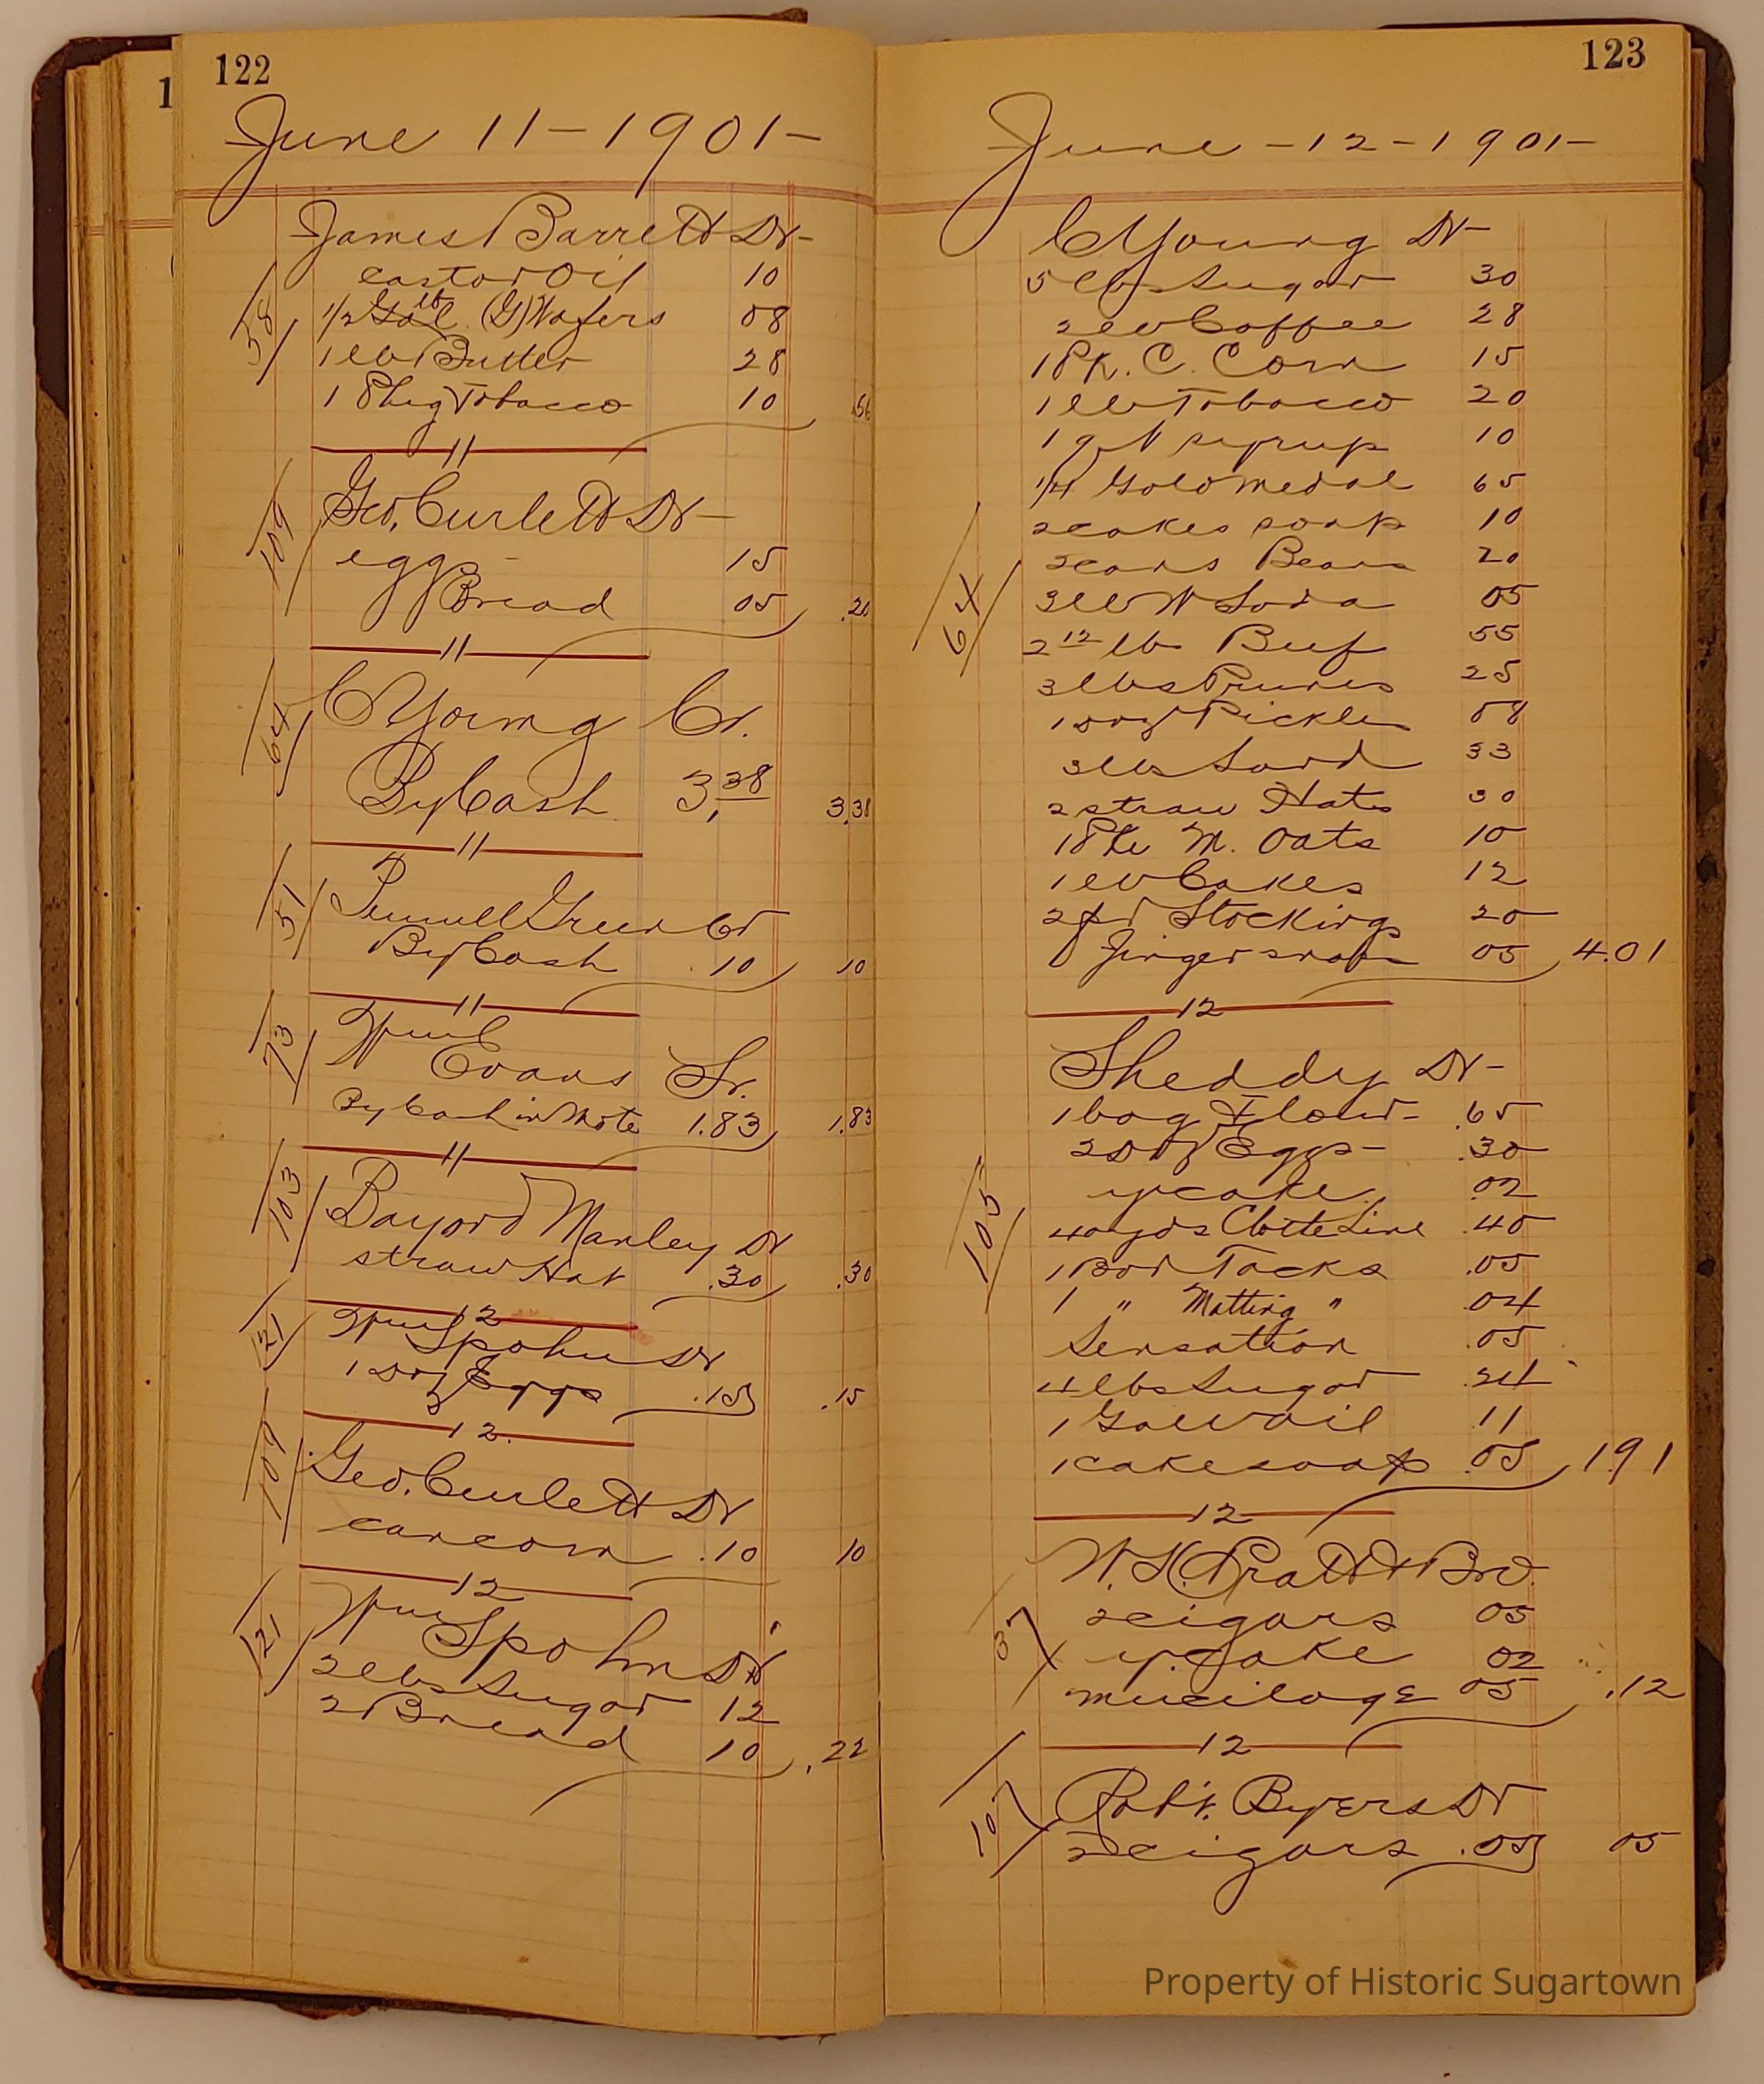 1
122
June 11-1901-
James Barrett Dr-
castor Oil 10
1/2 lb (G) Wafers 08
1 lb Butter 28
1 Pkg Tobacco 10 .56
38
11
Geo. Curlett Dr-
eggs 15
Bread 05 .20
109
11
C Young Cr.
By Cash 3,38 3.38
64
11
Green Cr
By Cash .10 10
51
11
Wm Evans Sr.
By Cash in Note 1.83 1.83
73
11
Bayard Manley Dr
straw Hat .30 .30
103
12
Wm Spohn Dr
1 Doz Eggs .15 .15
121
12.
Geo. Curlett Dr
can corn .10 10
109
12
Wm Spohn Dr
2 lbs Sugar 12
2 Bread 10 .22
121
123
June -12-1901-
C Young Dr-
5 lbs Sugar 30
2 lb Coffee 28
1 Pk. C. Corn 15
1 lb Tobacco 20
1 qt syrup 10
1/4 Gold medal 65
2 cakes soap 10
2 cans Beans 20
3 lb W Soda 05
2 12 lbs Beef 55
3 lbs Prunes 25
1 doz Pickles 08
3 lbs Lard 33
2 straw Hats 30
1 Pkg M. Oats 10
1 lb Cakes 12
2 pr Stockings 20
Gingersnaps 05 4.01
64
12
Sheddy Dr-
1 bag Flour- .65
2 Doz Eggs- .30
y cake .02
40 yds Clothe Line .40
1 Box Tacks .05
1 " Matting " .04
Sensation .05
4 lbs Sugar .24
1 Gal oil .11
1 cake soap .05 1.91
105
12
W.H. Pratt & Bro.
2 cigars 05
y. Cake 02
mucilage 05 .12
37
12
Robt. Byers Dr
2 cigars .05 05
107
Property of Historic Sugartown